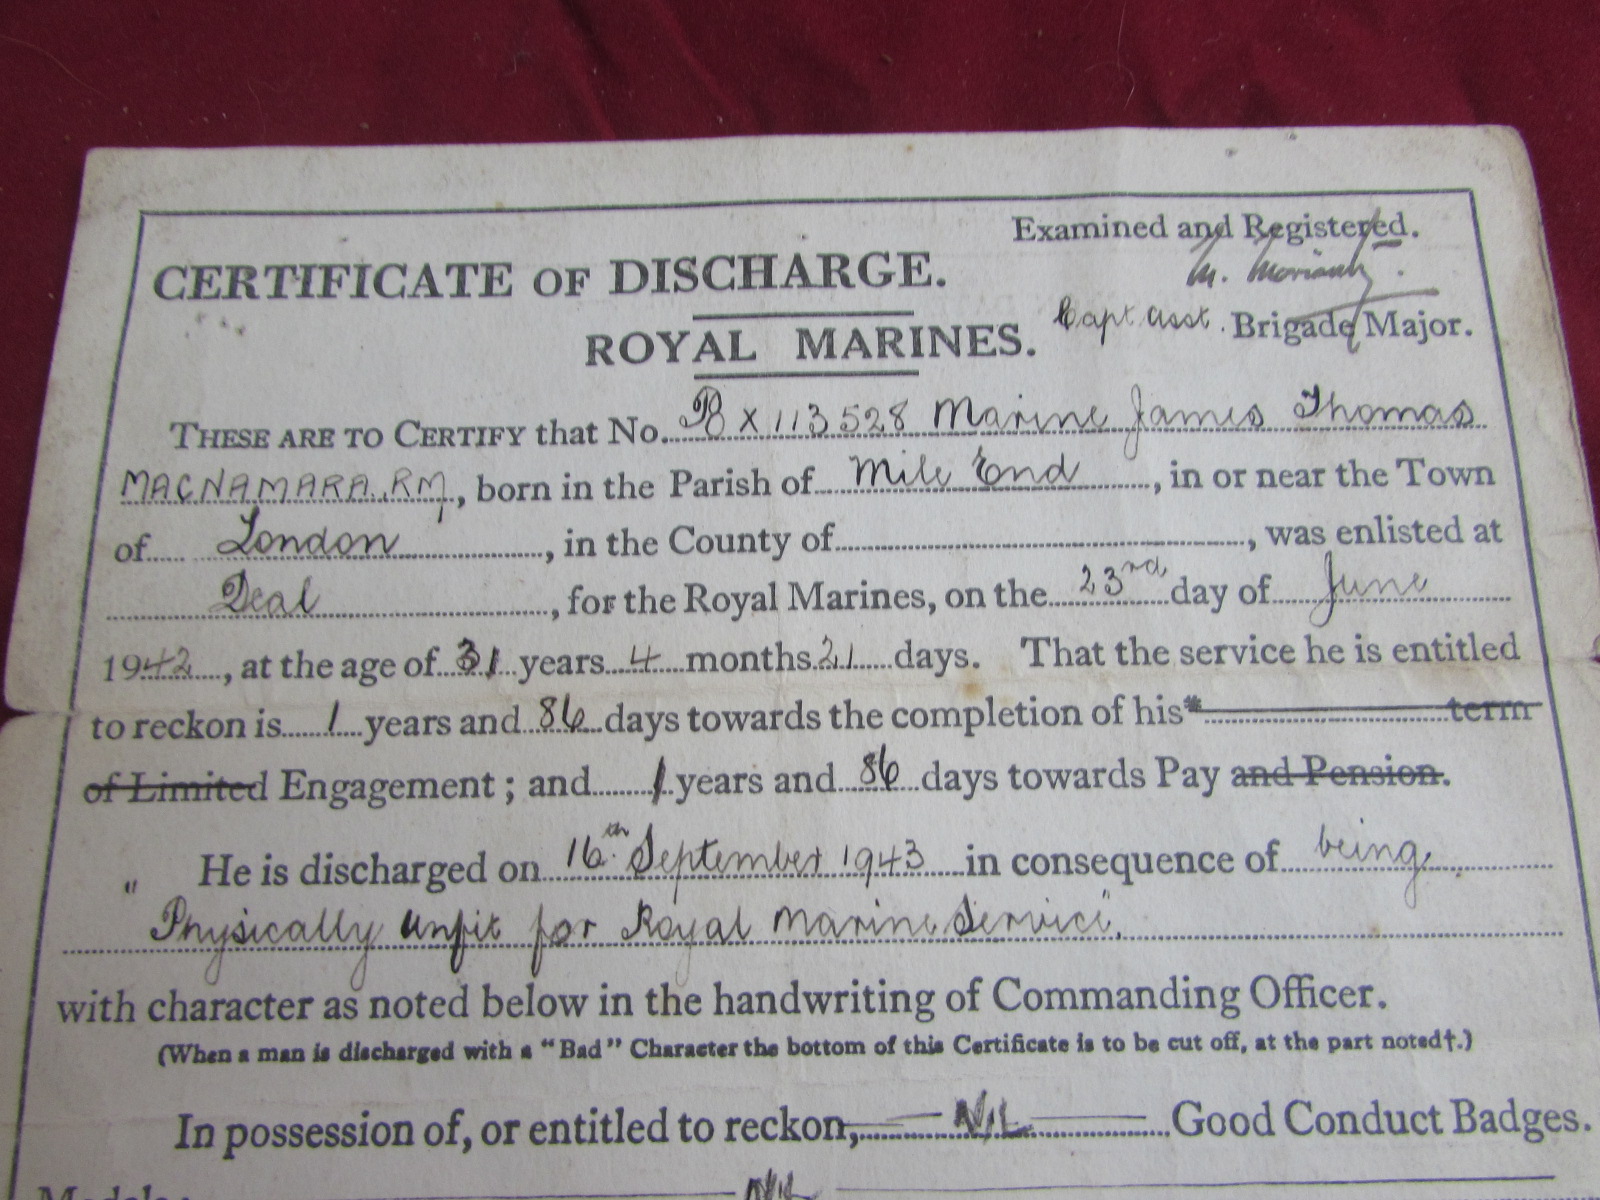 Examined and Registered.
CERTIFICATE OF DISCHARGE.
M. Moriarty.
Capt. Asst. Brigade Major.
ROYAL MARINES.
THESE ARE TO CERTIFY that No. X 113528 Marine James Thomas
MACNAMARA, RM, born in the Parish of Mile End, in or near the Town
of London, in the County of, was enlisted at
Deal, for the Royal Marines, on the 23rd day of June
1942, at the age of 31 years 4 months 21 days. That the service he is entitled
to reckon is 1 years and 86 days towards the completion of his* term
of Limited Engagement; and 1 years and 86 days towards Pay and Pension.
He is discharged on 16th September 1943 in consequence of being
"Physically unfit for Royal Marine Service".
with character as noted below in the handwriting of Commanding Officer.
(When a man is discharged with a "Bad" Character the bottom of this Certificate is to be cut off, at the part noted†.)
In possession of, or entitled to reckon, NIL Good Conduct Badges.
Nil